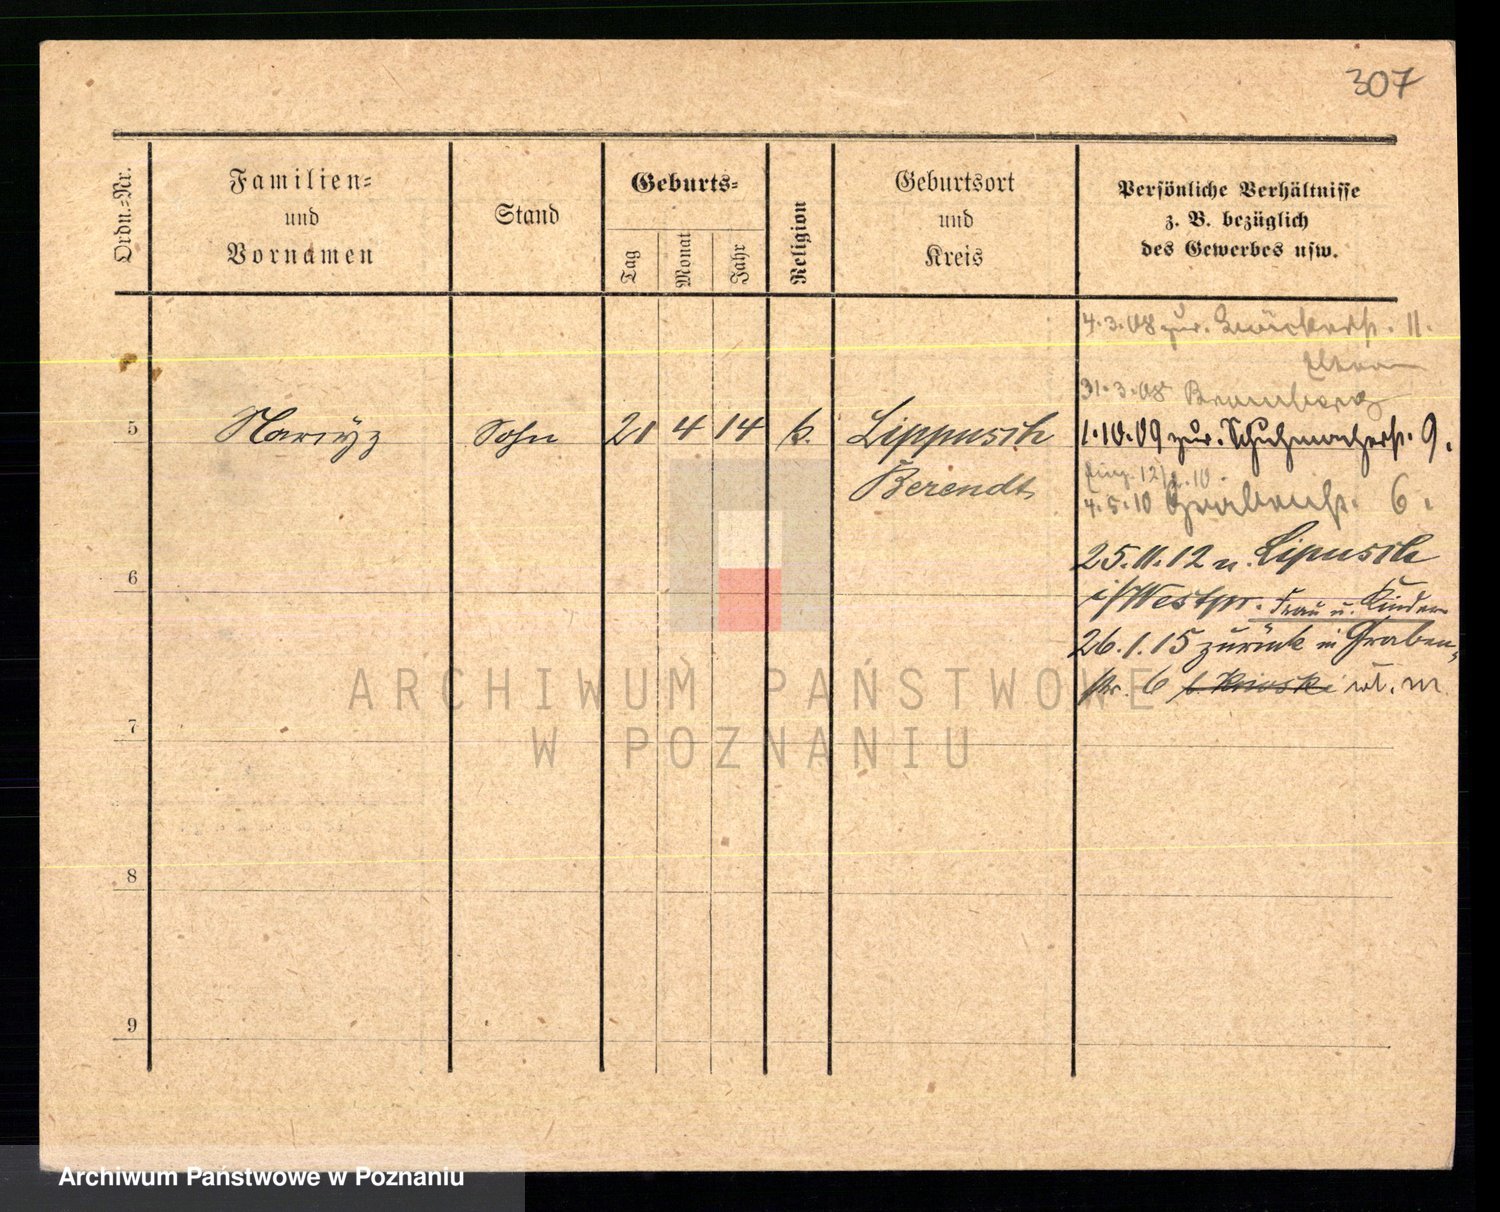 307
Ordn.-Nr.
Familien-
und
Vornamen
Stand
Geburts-
Tag
Monat
Jahr
Religion
Geburtsort
und
Kreis
Persönliche Verhältnisse
z. B. bezüglich
des Gewerbes usw.
4.3.08 zur. 11.
Eltern
31.3.08 Bromberg
5 Narcyz Sohn 21 4 14 k. Lippusch 1.10.09 zur. Schuhmacherstr. 9.
Berendt
4.5.10 Grabenstr. 6.
6 25.11.12 n. Lipusch
i/Westpr. Frau u. Kinder
26.1.15 zurück in Graben-
str. 6
7
8
9
ARCHIWUM PAŃSTWOWE
W POZNANIU
Archiwum Państwowe w Poznaniu